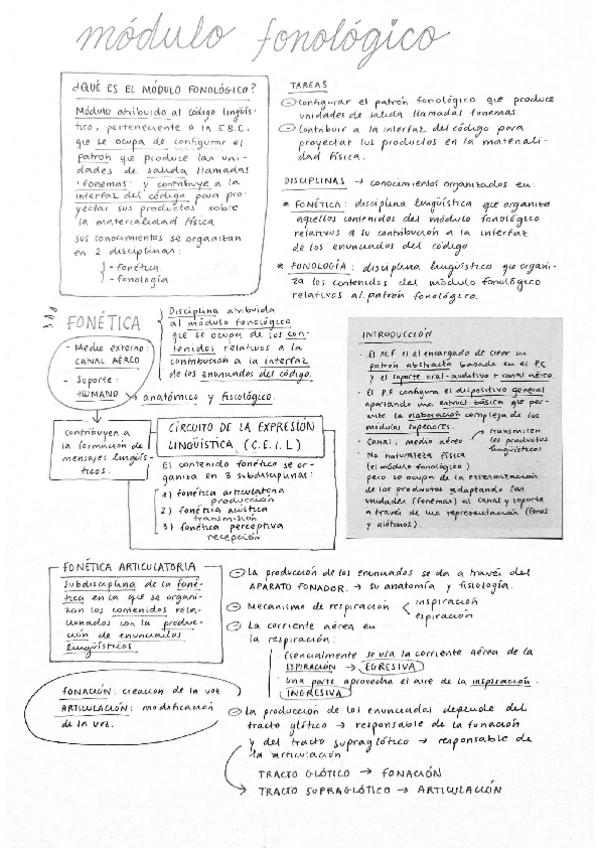 módulo fonológico
¿QUÉ ES EL MÓDULO FONOLÓGICO?
Módulo atribuido al código lingüís-
tico, perteneciente a la E.B.C.
que se ocupa de configurar el
patrón que produce las uni-
dades de salida llamadas
'fonemas' y contribuye a la
interfaz del código para pro-
yectar sus productos sobre
la materialidad física
sus conocimientos se organizan
en 2 disciplinas:
- fonética
- fonología
TAREAS
configurar el patrón fonológico que produce
unidades de salida llamadas fonemas.
contribuir a la interfaz del código para
proyectar sus productos en la materiali-
dad física.
DISCIPLINAS → conocimientos organizados en:
* FONÉTICA: disciplina lingüística que organiza
aquellos contenidos del módulo fonológico
relativos a su contribución a la interfaz
de los enunciados del código
* FONOLOGÍA: disciplina lingüística que organi-
za los contenidos del módulo fonológico
relativos al patrón fonológico.
FONÉTICA
- Medio externo:
CANAL AÉREO
- Soporte:
HUMANO → anatómico y fisiológico.
Disciplina atribuida
al módulo fonológico
que se ocupa de los con-
tenidos relativos a la
contribución a la interfaz
de los enunciados del código.
contribuyen a
la formación de
mensajes lingüís-
ticos.
CIRCUITO DE LA EXPRESIÓN
LINGÜÍSTICA (C.E.I.L)
El contenido fonético se or-
ganiza en 3 subdisciplinas:
1) fonética articulatoria
producción
2) fonética acústica
transmisión
3) fonética perceptiva
recepción
INTRODUCCIÓN
· El M.F es el encargado de crear un
patrón abstracto basado en el FC
y el soporte oral-auditivo + canal aéreo.
· El P.F configura el dispositivo general
aportando una estruct básica que per-
mite la elaboración compleja de los
módulos superiores.
· Canal: medio aéreo → transmiten
los productos
lingüísticos
· No naturaleza física
(el módulo fonológico)
pero se ocupa de la exteriorización
de los productos adaptando las
unidades (fonemas) al canal y soporte
a través de una representación (fonos
y alófonos).
FONÉTICA ARTICULATORIA
Subdisciplina de la foné-
tica en la que se organi-
zan los contenidos rela-
cionados con la produc-
ción de enunciados
lingüísticos
FONACIÓN: creación de la voz
ARTICULACIÓN: modificación
de la voz.
La producción de los enunciados se da a través del
APARATO FONADOR. → su anatomía y fisiología.
Mecanismo de respiración < inspiración
espiración
La corriente aérea en
la respiración:
Esencialmente se usa la corriente aérea de la
ESPIRACIÓN → EGRESIVA
· una parte aprovecha el aire de la inspiración.
INGRESIVA
La producción de los enunciados depende del
tracto glótico → responsable de la fonación
y del tracto supraglótico → responsable de
la articulación
TRACTO GLÓTICO → FONACIÓN
TRACTO SUPRAGLÓTICO → ARTICULACIÓN